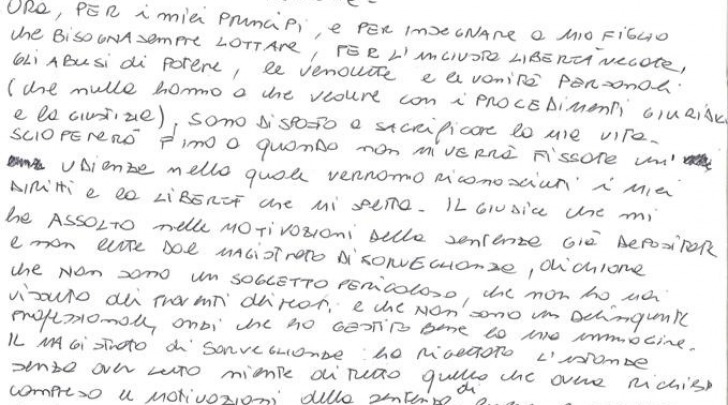 ORA, PER i miei PRINCIPI, e PER INSEGNARE a MIO FIGLIO
che BISOGNA SEMPRE LOTTARE, PER L'INGIUSTA LIBERTÀ NEGATA,
GLI ABUSI di POTERE, le vendette e le vanità PERSONALI
(che nulla hanno a che vedere con i PROCEDIMENTI GIURIDICI
e la GIUSTIZIA), SONO DISPOSTO a SACRIFICARE la mia VITA.
SCIOPERERÒ FINO a quando non MI VERRÀ FISSATA UN'
UDIENZA nella quale verranno RICONOSCIUTI i miei
DIRITTI e la LIBERTÀ che MI SPETTA. IL GIUDICE che mi
ha ASSOLTO nelle MOTIVAZIONI della sentenza GIÀ DEPOSITATE
e non lette DAL MAGISTRATO DI SORVEGLIANZA, dichiara
che NON sono un SOGGETTO PERICOLOSO, che non ho mai
vissuto di e che NON sono un DELINQUENTE
PROFESSIONALE, anzi che ho GESTITO BENE la mia immagine.
IL MAGISTRATO di SORVEGLIANZA ha RIGETTATO L'ISTANZA
senza aver letto niente di tutto quello che aveva RICHIESTO
compreso le MOTIVAZIONI della sentenza di